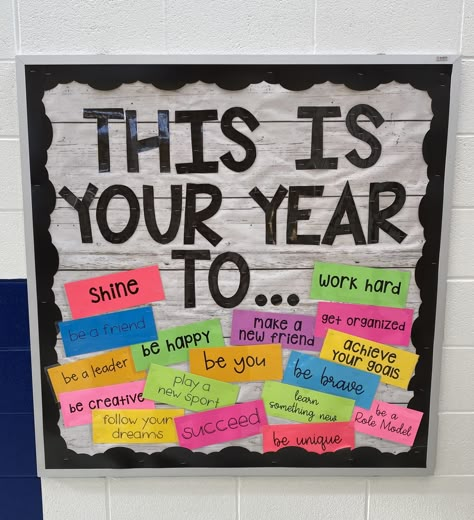 THIS IS
YOUR YEAR
TO...
shine
work hard
be a friend
make a
new friend
get organized
be happy
be a leader
be you
achieve
your goals
play a
new sport
be brave
be creative
learn
something new
follow your
dreams
succeed
be a
Role Model
be unique